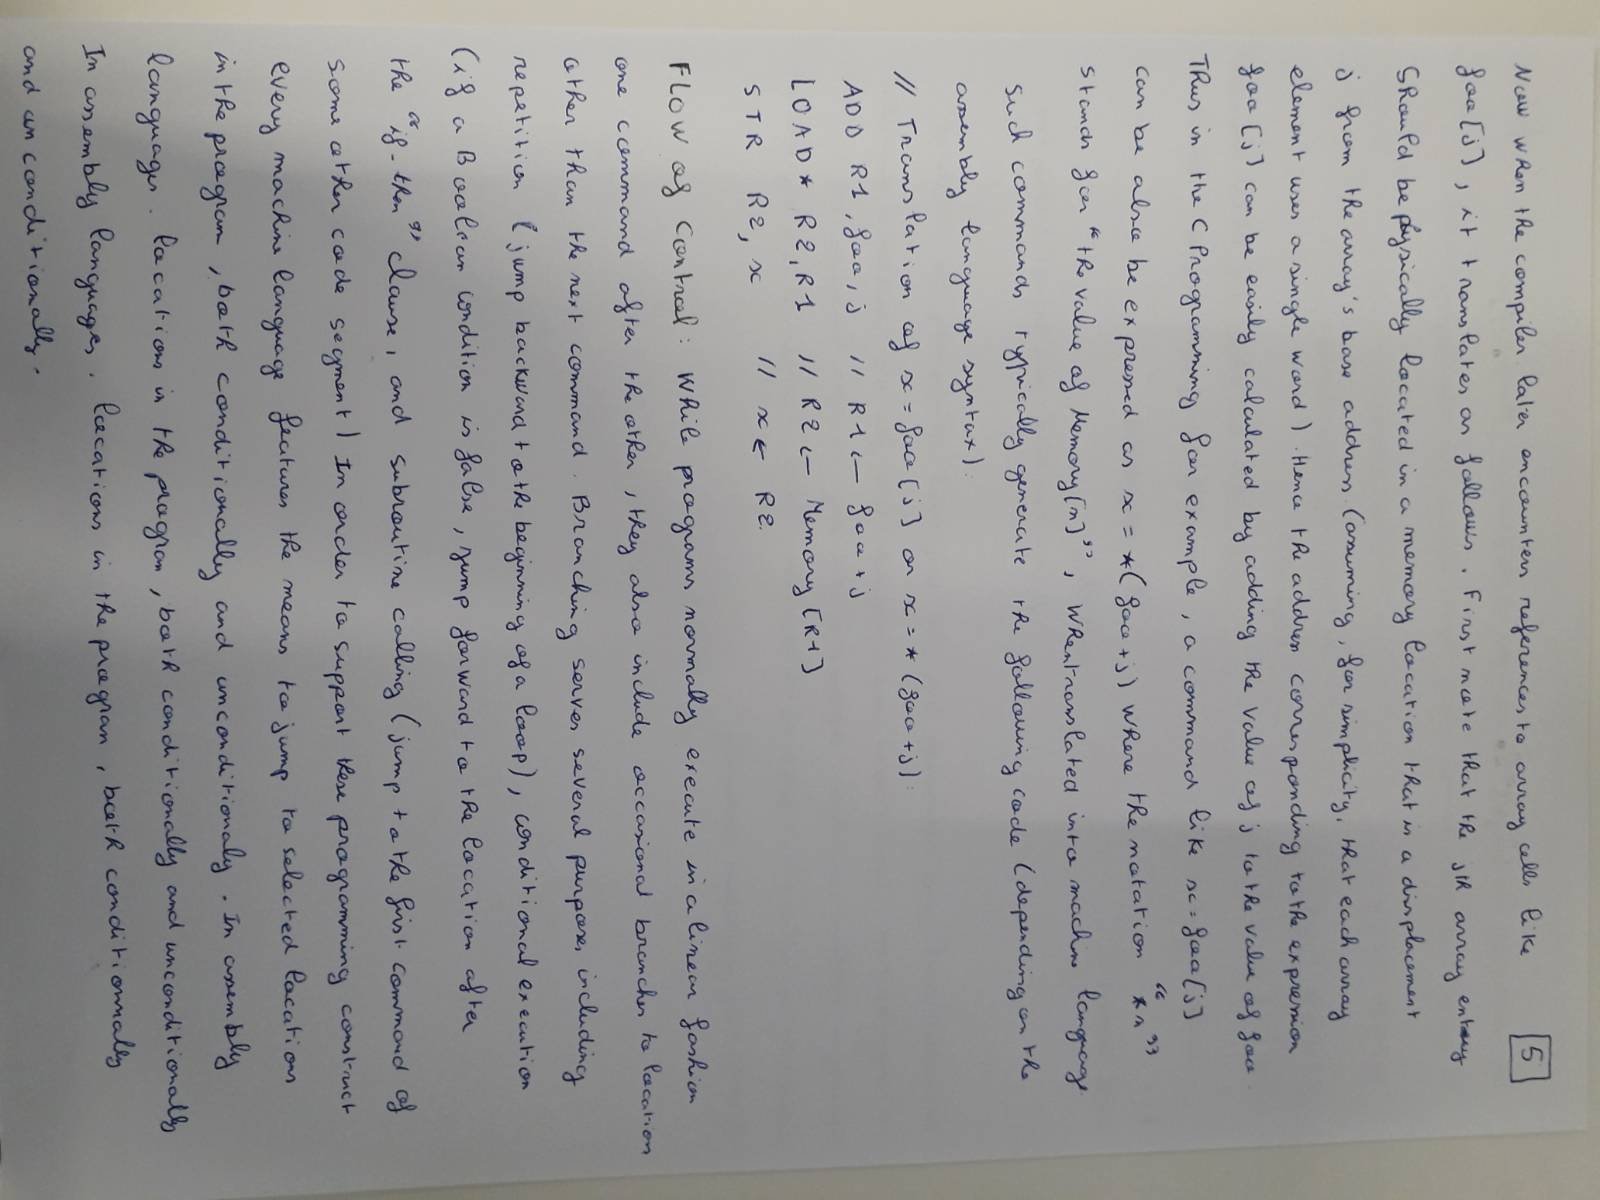 5
Now when the compiler later encounters references to array cells like
foo[j], it translates as follows. First note that the jth array entry
Should be physically located in a memory location that is a displacement
j from the array's base address (assuming, for simplicity, that each array
element uses a single word). Hence the address corresponding to the expression
foo[j] can be easily calculated by adding the value of j to the value of foo.
Thus in the C Programming for example, a command like x = foo[j]
can be also be expressed as x = *(foo+j) where the notation "*n"
stands for "the value of Memory[n]", when translated into machine language
such commands typically generate the following code (depending on the
assembly language syntax):
// Translation of x = foo[j] or x = *(foo+j):
ADD R1, foo, j // R1 ← foo+j
LOAD* R2, R1 // R2 ← Memory[R1]
STR R2, x // x ← R2.
Flow of Control: While programs normally execute in a linear fashion
one command after the other, they also include occasional branches to location
other than the next command. Branching serves several purposes including
repetition (jump backward to the beginning of a loop), conditional execution
(if a Boolean condition is false, jump forward to the location after
the "if-then" clause, and subroutine calling (jump to the first command of
some other code segment) In order to support these programming construct
every machine language features the means to jump to selected locations
in the program, both conditionally and unconditionaly. In assembly
languages. locations in the program, both conditionally and unconditionally
In assembly languages. locations in the program, both conditionnally
and unconditionally.